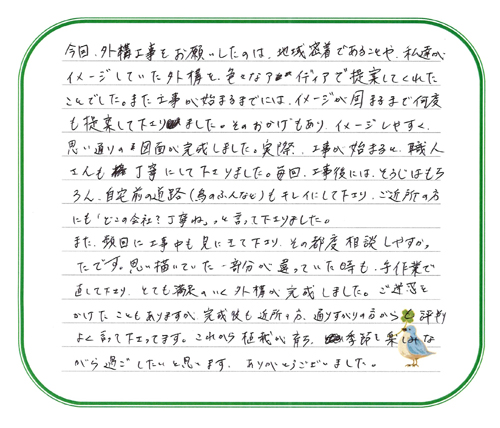 今回、外構工事をお願いしたのは、地域密着であることや、私達が
イメージしていた外構を、色々なアイディアで提案してくれた
ことでした。また工事が始まるまでには、イメージが固まるまで何度
も提案して下さりました。そのおかげもあり、イメージしやすく、
思い通りの図面が完成しました。実際、工事が始まると、職人
さんも丁寧にして下さりました。毎回、工事後には、そうじはもち
ろん、自宅前の道路(鳥のふんなども)もキレイにして下さり、ご近所の方
にも「どこの会社?丁寧ね。」と言って下さりました。
また、頻回に工事中も見にきて下さり、その都度相談しやすかっ
たです。思い描いていた一部分が違っていた時も、手作業で
直して下さり、とても満足のいく外構が完成しました。ご迷惑を
かけたこともありますが、完成後も近所の方、通りすがりの方から評判
よく言って下さってます。これから植栽が育ち、季節を楽しみな
がら過ごしたいと思います。ありがとうございました。